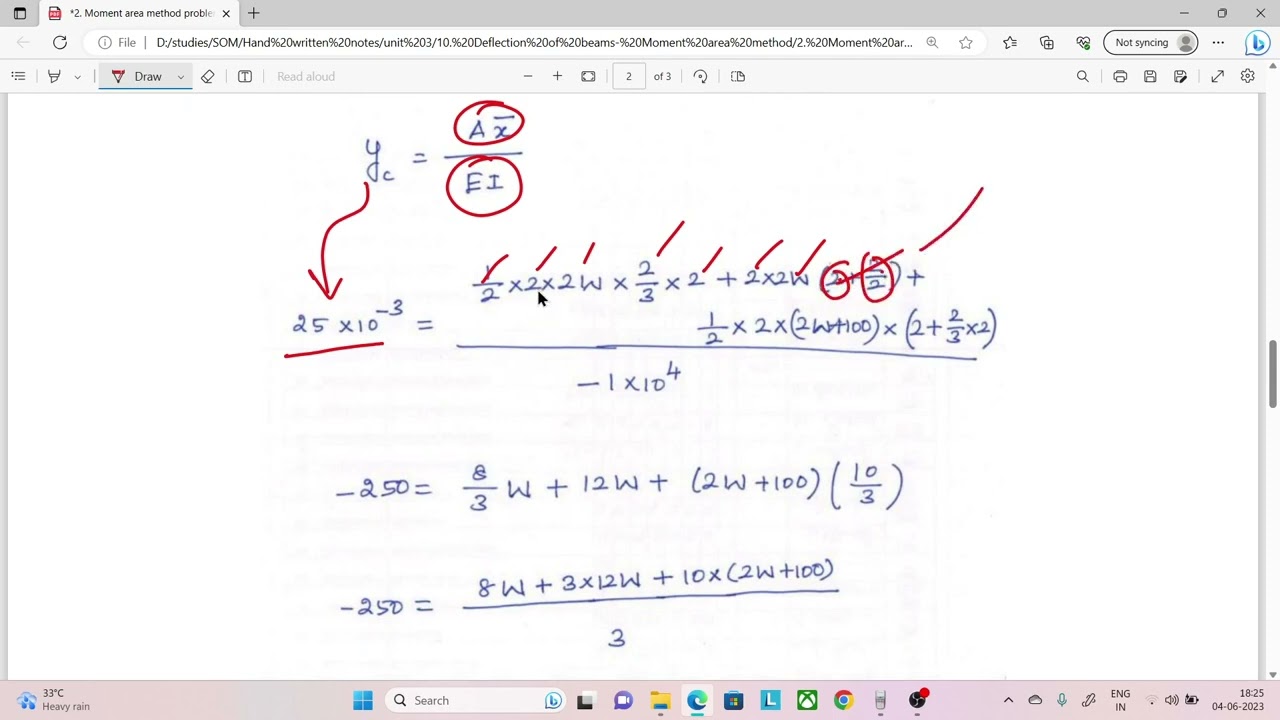 *2. Moment area method proble
File D:/studies/SOM/Hand%20written%20notes/unit%203/10.%20Deflection%20of%20beams-%20Moment%20area%20method/2.%20Moment%20ar...
Not syncing
Draw
Read aloud
2 of 3
y_c = A x̄ / EI
25 × 10⁻³ = 1/2 × 2 × 2W × 2/3 × 2 + 2 × 2W (2 + 2/2) +
1/2 × 2 × (2W+100) × (2 + 2/3 × 2)
−1 × 10⁴
−250 = 8/3 W + 12W + (2W+100) (10/3)
−250 = 8W + 3×12W + 10×(2W+100)
3
33°C
Heavy rain
Search
ENG
IN
18:25
04-06-2023